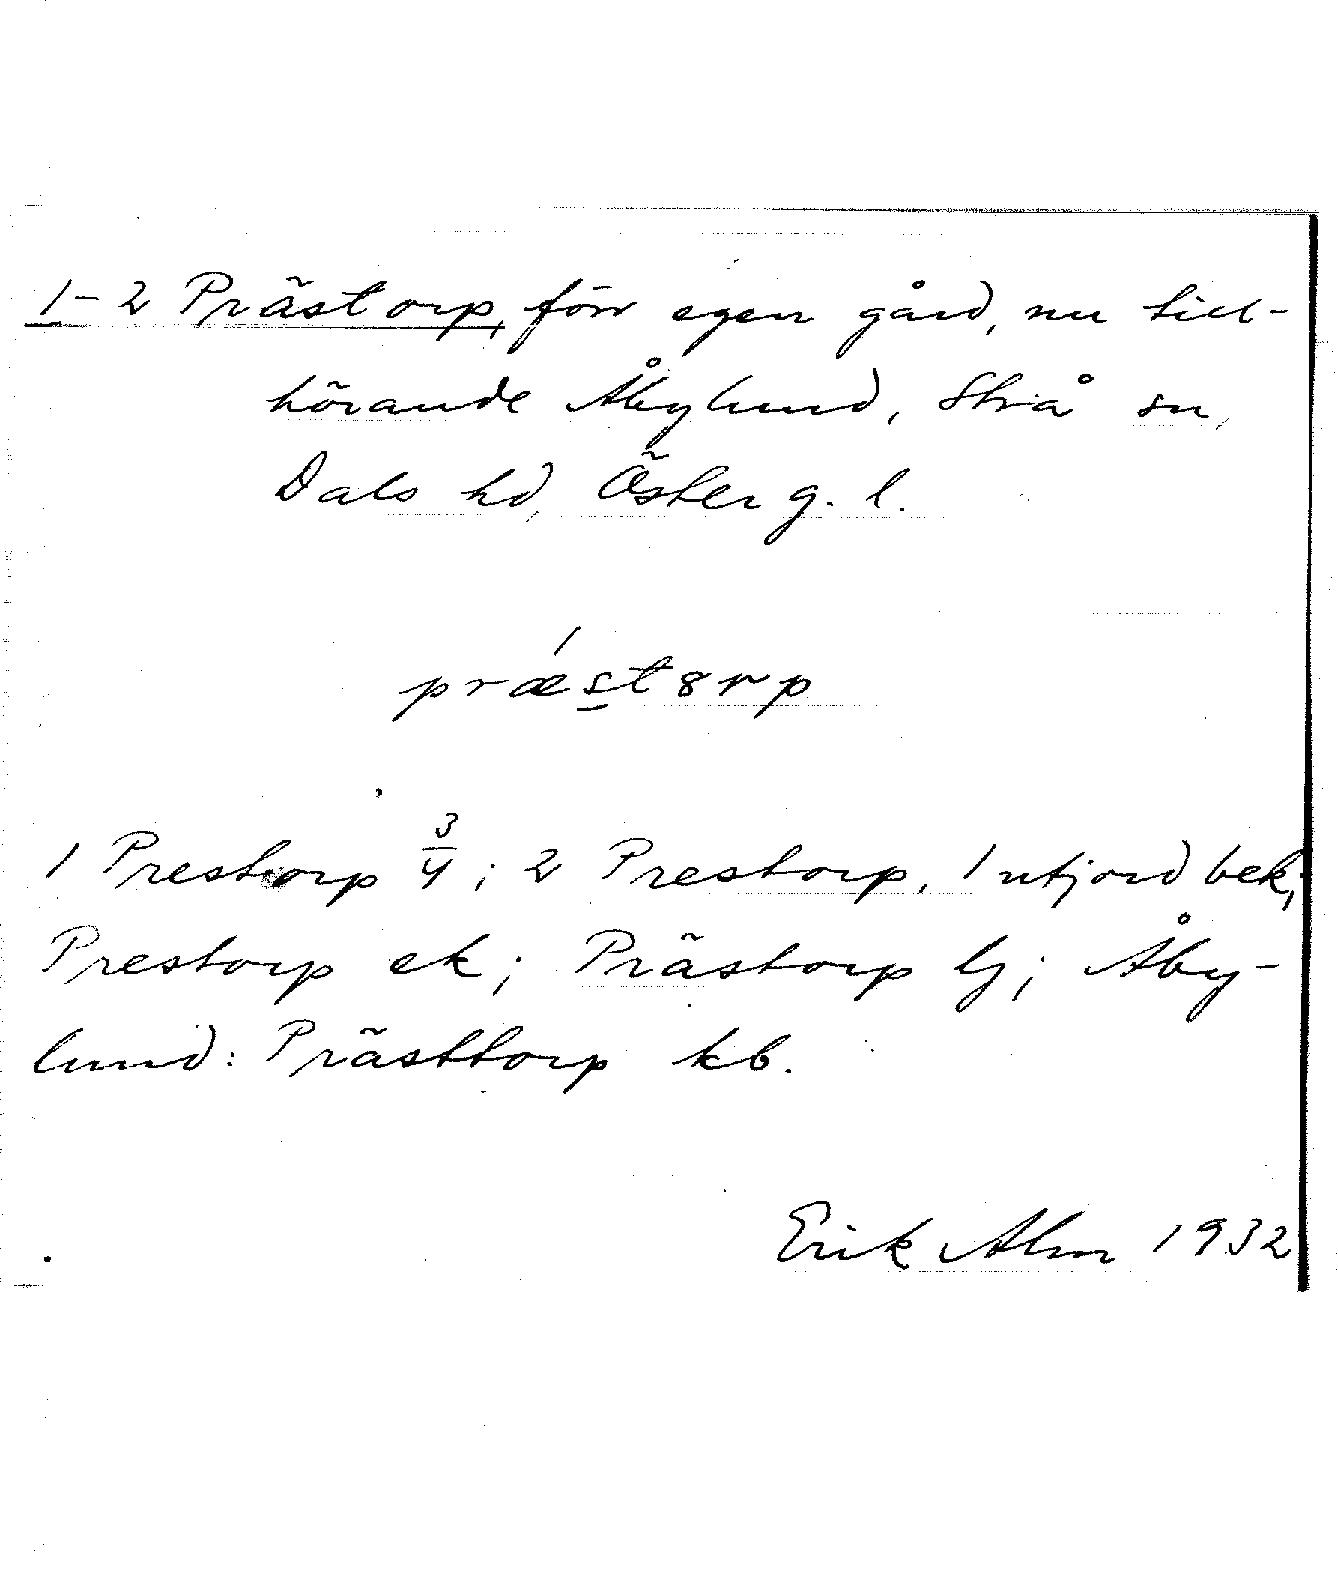 1-2 Prästorp, förr egen gård, nu till-
hörande Åbylund, Strå sn,
Dals hd, Österg. l.
prǽst8rp
1 Prestorp 3/4; 2 Prestorp, 1 utjord bek;
Prestorp ek; Prästorp lj; Åby-
lund: Prästtorp kb.
Erik Alm 1932